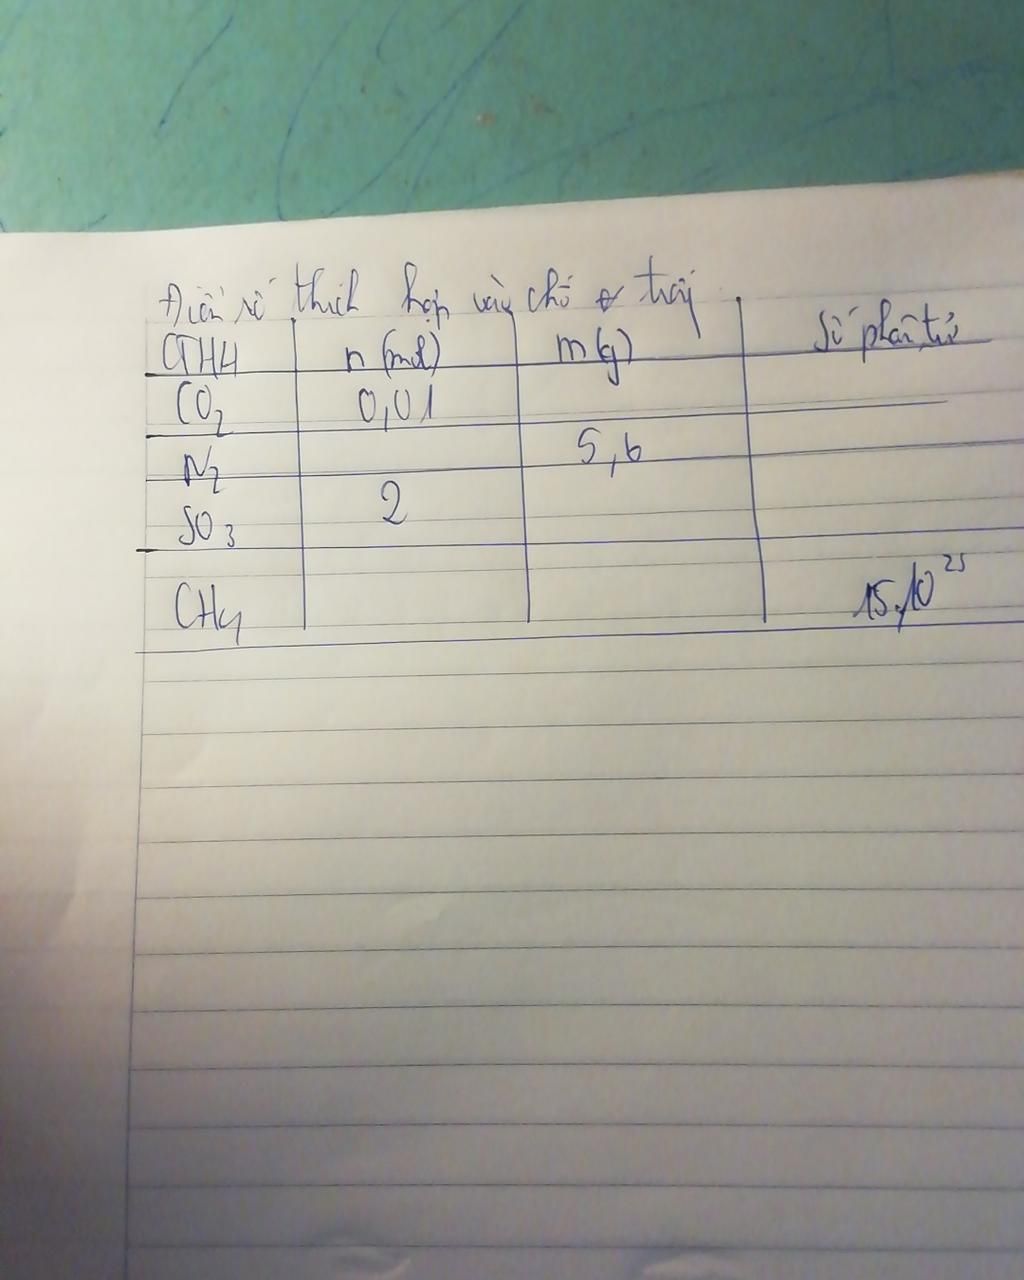 Điền số thích hợp vào chỗ trống
CTHH n (mol) m (g) Số phân tử
CO₂ 0,01
N₂ 5,6
SO₃ 2
CH₄ 15.10²³